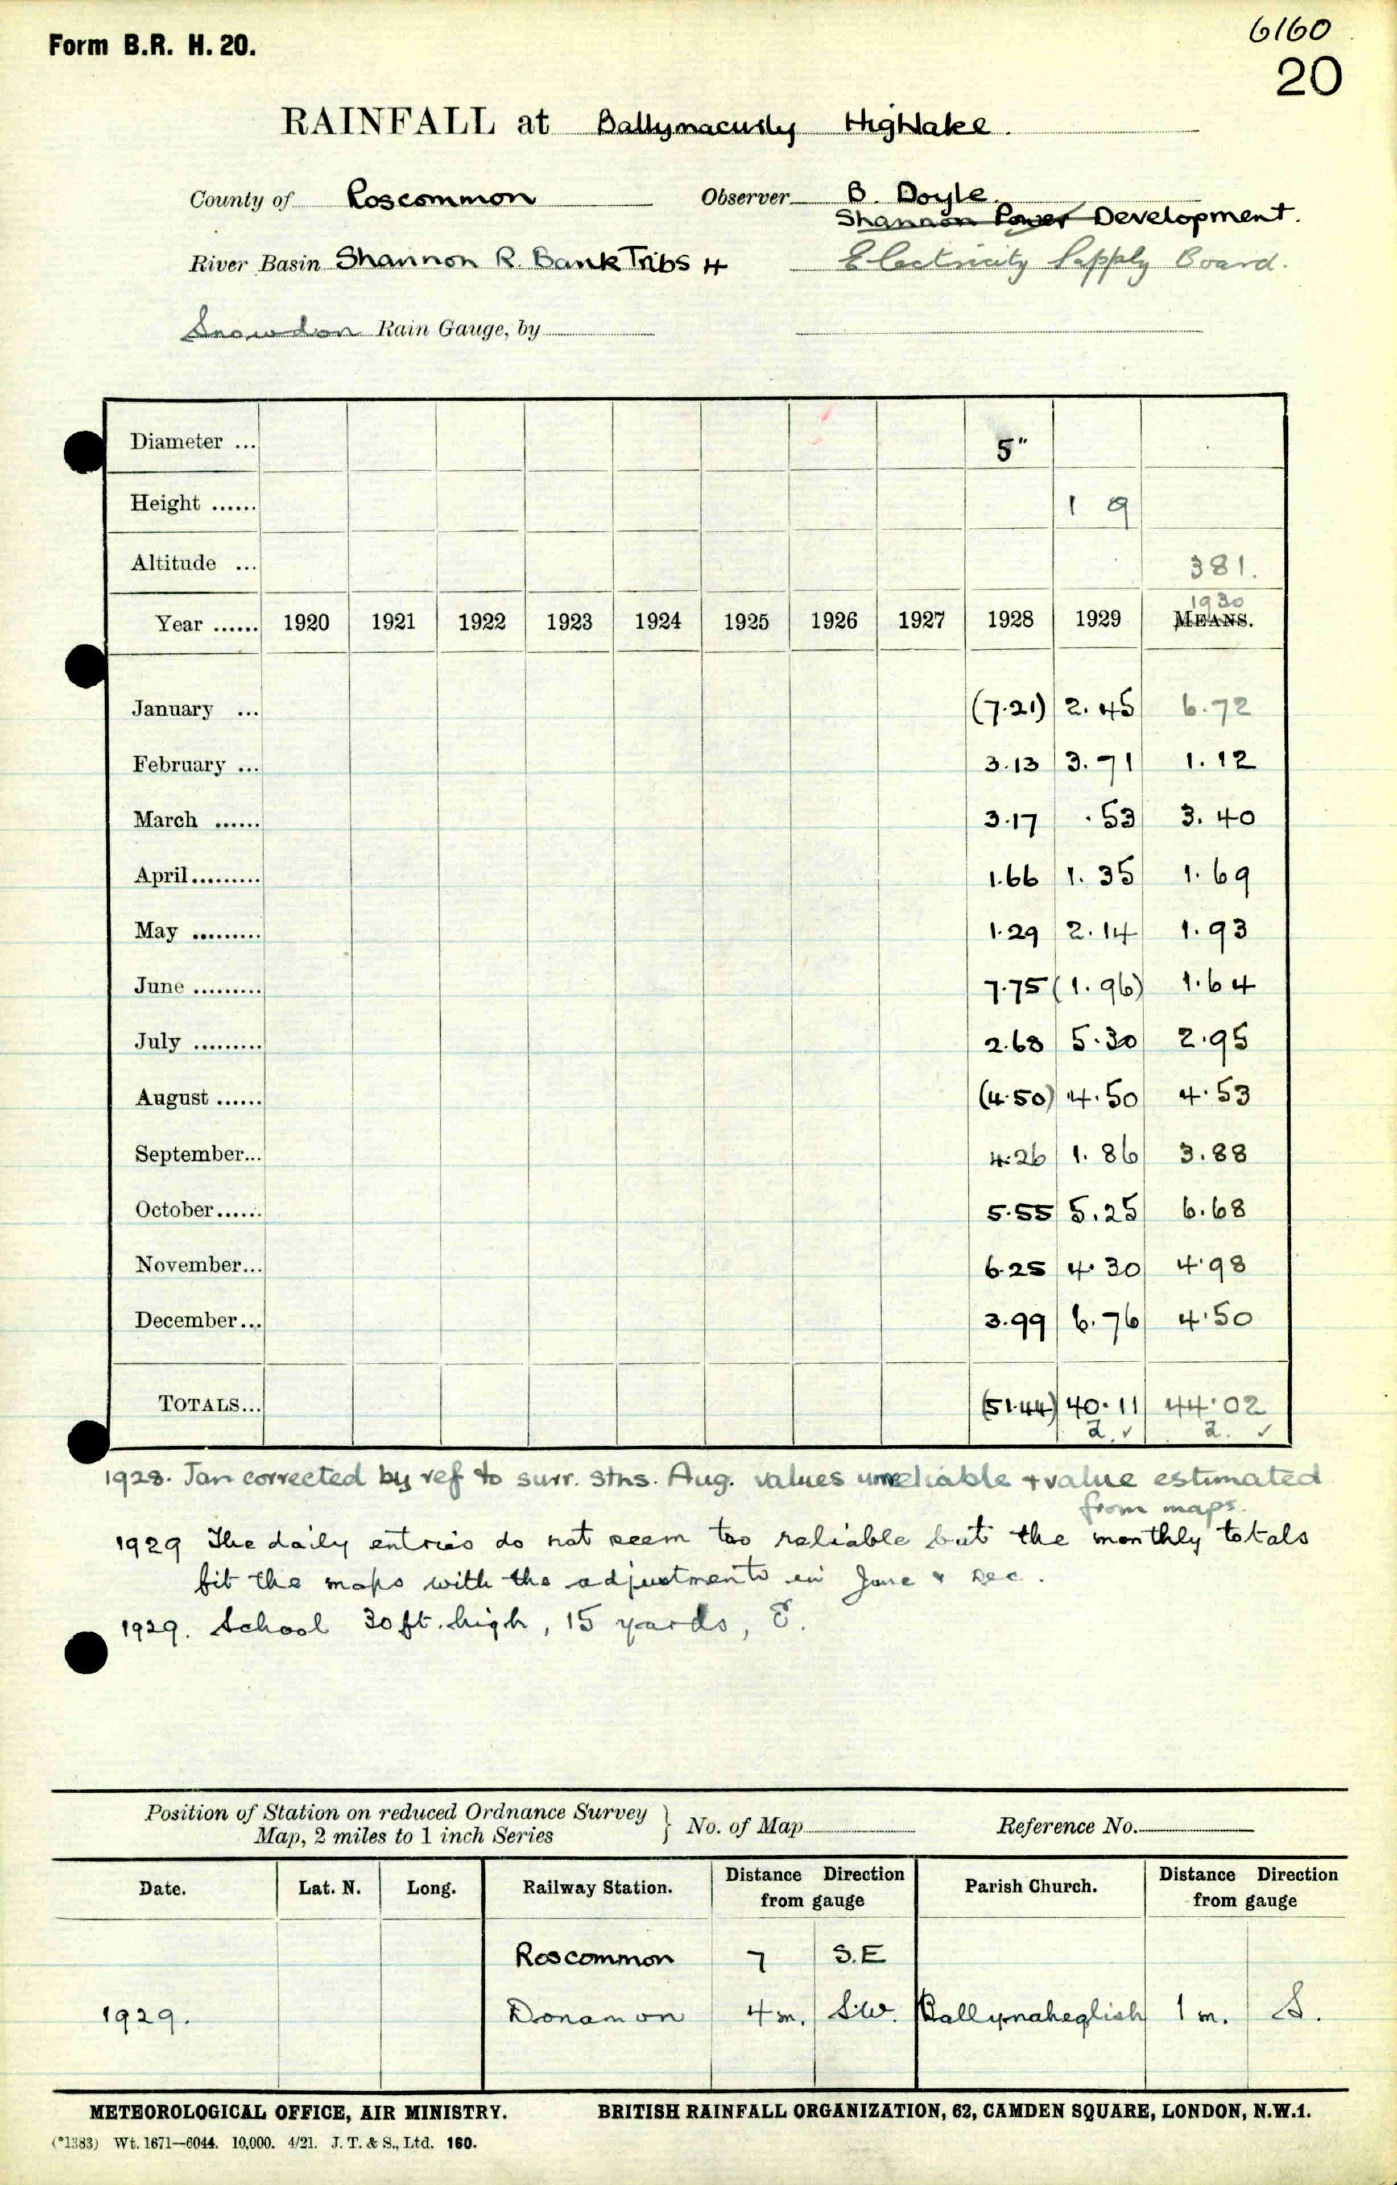 Form B.R. H. 20.
6160
20
RAINFALL at Ballymacurly Highlake.
County of Roscommon Observer B. Doyle.
Shannon Power Development.
River Basin Shannon R. Bank Tribs 4 Electricity Supply Board.
Snowdon Rain Gauge, by
Diameter ... 5"
Height ...... 1 9
Altitude ... 381.
1930
Year ...... 1920 1921 1922 1923 1924 1925 1926 1927 1928 1929 MEANS.
January ... (7.21) 2.45 6.72
February ... 3.13 3.71 1.12
March ...... 3.17 .53 3.40
April......... 1.66 1.35 1.69
May ......... 1.29 2.14 1.93
June ......... 7.75 (1.96) 1.64
July ......... 2.68 5.30 2.95
August ...... (4.50) 4.50 4.53
September... 4.26 1.86 3.88
October...... 5.55 5.25 6.68
November... 6.25 4.30 4.98
December... 3.99 6.76 4.50
TOTALS... (51.44) 40.11 44.02
2 ✓ 2. ✓
1928. Jan corrected by ref to surr. stns. Aug. values unreliable + value estimated
from maps.
1929 The daily entries do not seem too reliable but the monthly totals
fit the maps with the adjustments in June & Dec.
1929. School 30 ft. high, 15 yards, E.
Position of Station on reduced Ordnance Survey
Map, 2 miles to 1 inch Series } No. of Map Reference No.
Date. Lat. N. Long. Railway Station. Distance Direction from gauge Parish Church. Distance Direction from gauge
Roscommon 7 S.E
1929. Donamon 4 m. S.W. Ballynaheglish 1 m. S.
METEOROLOGICAL OFFICE, AIR MINISTRY. BRITISH RAINFALL ORGANIZATION, 62, CAMDEN SQUARE, LONDON, N.W.1.
(*1383) Wt. 1671—6044. 10,000. 4/21. J. T. & S., Ltd. 160.